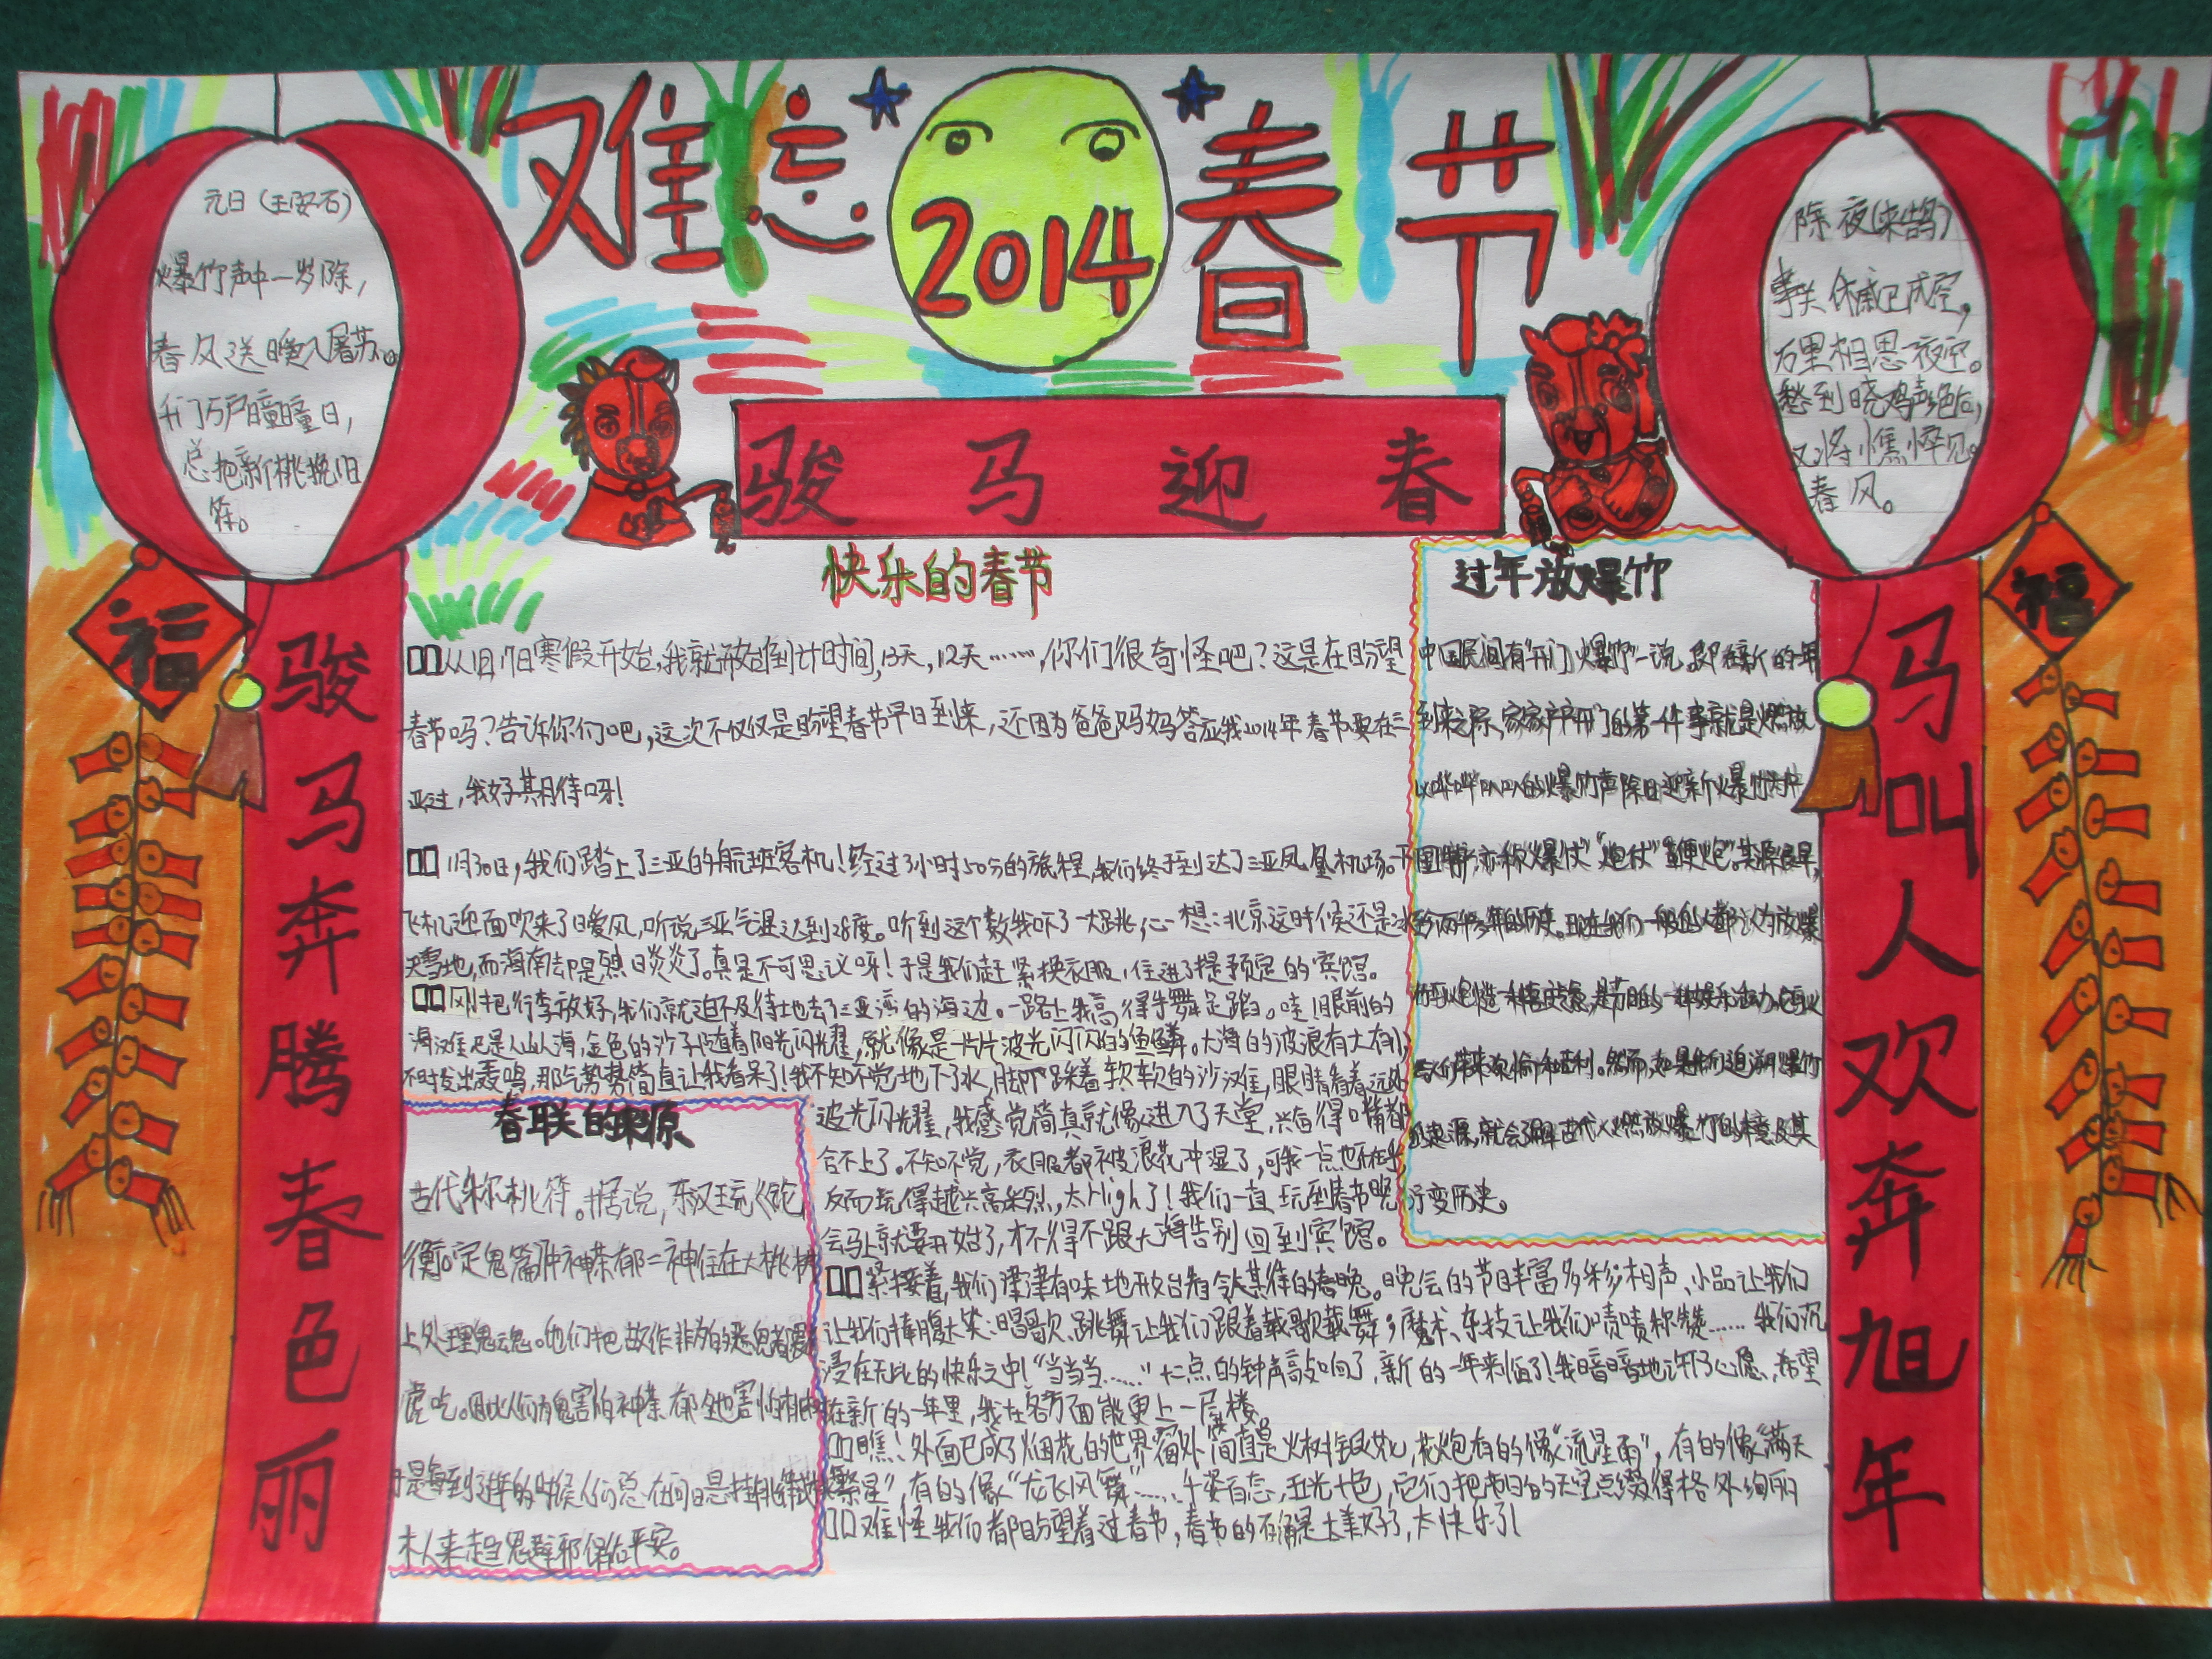 难忘
2014
春节
元日（王安石）
爆竹声中一岁除，
春风送暖入屠苏。
千门万户瞳瞳日，
总把新桃换旧
符。
除夜（来鹄）
事关休戚已成空，
万里相思一夜中。
愁到晓鸡声绝后，
又将憔悴见
春风。
骏马迎春
福
福
骏马奔腾春色丽
马叫人欢奔旭年
快乐的春节
从1月17日寒假开始，我就开始倒计时间，13天，12天……，你们很奇怪吧？这是在盼望
春节吗？告诉你们吧，这次不仅仅是盼望春节早日到来，还因为爸爸妈妈答应我2014年春节要在三
亚过，我好期待呀！
1月30日，我们踏上了三亚的航班客机！经过3小时50分的旅程，我们终于到达了三亚凤凰机场。下
飞机迎面吹来了暖风，听说三亚气温达到28度。听到这个数我吓了一大跳，心想：北京这时候还是冰
天雪地，而海南却是烈日炎炎了。真是不可思议呀！于是我们赶紧换衣服，住进了提预定的宾馆。
刚把行李放好，我们就迫不及待地去了三亚湾的海边。一路上我高得手舞足蹈。哇！眼前的
海滩已是人山人海，金色的沙子随着阳光闪耀，就像是一片片波光闪闪的鱼鳞。大海的波浪有大有小，
不时发出轰鸣，那气势势简直让我看呆了！我不知不觉地下了水，脚下踩着软软的沙滩，眼睛看着远处
波光闪耀，我感觉简真就像进入了天堂，兴奋得嘴都
合不上了。不知不觉，衣服都被浪花冲湿了，可我一点也不在乎，
反而玩得越兴高采烈，太High了！我们一直玩到春节晚
会马上就要开始了，才不得不跟大海告别回到宾馆。
紧接着，我们津津有味地开始看令人期待的春晚。晚会的节目丰富多彩：相声、小品让我们
让我们捧腹大笑；唱歌、跳舞让我们跟着载歌载舞；魔术、杂技让我们啧啧称赞……我们沉
浸在无比的快乐之中！“当当当……”十二点的钟声敲响了，新的一年来临了！我暗暗地许下了心愿，希望
在新的一年里，我在各方面能更上一层楼。
瞧！外面已成了烟花的世界，窗外简直是火树银花，花炮有的像“流星雨”，有的像“满天
繁星”，有的像“龙飞凤舞”……千姿百态，五光十色，它们把节日的天空点缀得格外绚丽
难怪我们都盼望着过春节，春节的确是太美好了，太快乐了！
过年放爆竹
中国民间有“开门爆竹”一说。即在新的一年
到来之际，家家户户开门的第一件事就是燃放
的爆竹声除旧迎新。爆竹为中
国特产，亦称“爆仗”“炮仗”“鞭炮”。其起源很早，
至今两千多年的历史。现在我们一般的人都认为放爆
竹可以创造一种喜庆气氛，是节日的一种娱乐活动，它可以
给人们带来欢愉和吉利。然而，如果我们追溯爆竹
的起源，就会了解古代人燃放爆竹的本意及其
行变历史。
春联的来源
古代称桃符。据说，东汉王充《论
衡。定鬼篇》
上处理鬼魂。他们把故作非为的恶鬼
虎吃。因此人们为鬼害怕神荼、郁
于是每到过年的时候，人们总在
木人来赶鬼避邪保佑平安。